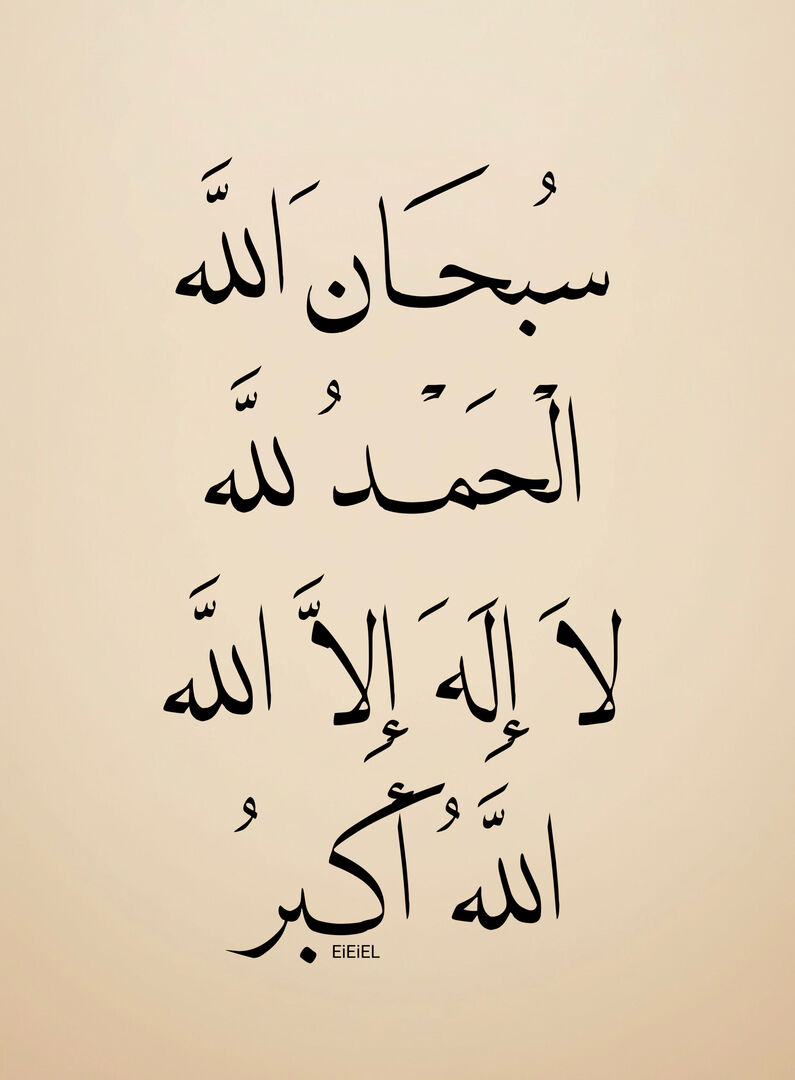 سُبحَان َاللَّه
الْحَمْدُ للَّه
لاَ إِلَهَ إِلاَّ اللَّه
اللَّهُ أَكبرُ
EiEiEL